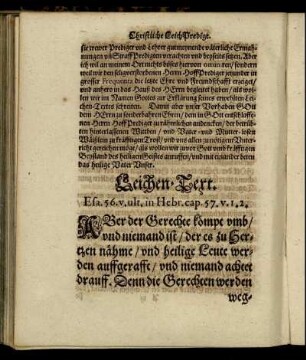 Christliche Leich Predigt.
sie trewer Prediger vnd Lehrer gutmeynende väterliche Ermah-
nungen vnd Straff Predigten verachten vnd beyseits setzen. Aber
ich wil an meinem Ort nichts böses hiervon ominiren/ sondern
weil wir den seligverstorbenen Herrn Hoff Prediger jetzunder in
grosser Frequentz die letzte Ehre vnd Freundschafft erzeiget/
vnd anhero in das Hauß des HErrn begleitet haben/ als wol-
len wir im Namen Gottes zur Erklärung seines erwehlten Leich-
Textes schreiten. Damit aber unser Vorhaben GOtt
dem HErrn zu sonderbahren Ehren/ dem in Gott entschlaffe-
nen Herrn Hoff Prediger zu rühmlichen andencken/ der betrüb-
ten hinterlassenen Witben/ vnd Vater- vnd Mutter-losen
Wäyslein zu kräfftigen Trost/ vnd vns allen zu nötigen Vnter-
richt gereichen möge/ als wollen wir zuvor Gott vmb kräfftigen
Beystand des heiligen Geistes anruffen/ vnd mit einander beten
das heilige Vater Vnser.
Leichen-Text.
Esa. 56. v. ult. in Hebr. cap. 57. v. 1, 2,
ABer der Gerechte kömpt vmb/
vnd niemand ist/ der es zu Her-
tzen nähme/ vnd heilige Leute wer-
den auffgerafft/ vnd niemand achtet
drauff. Denn die Gerechten werden
weg-